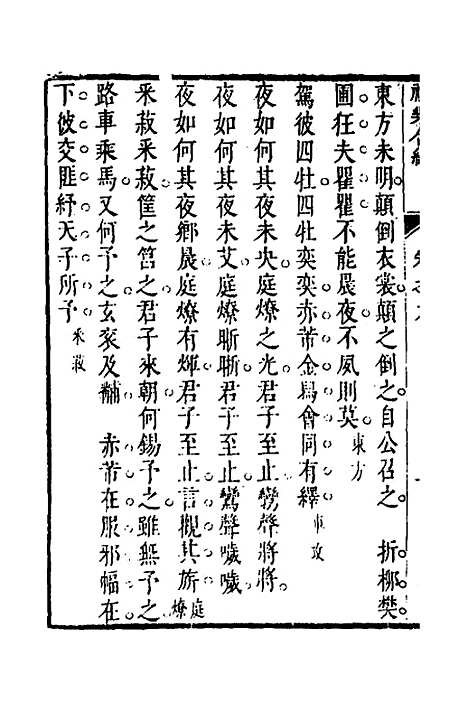 東方未明顛倒衣裳顛之倒之自公召之　折柳樊
圃狂夫瞿瞿不能晨夜不夙則莫東方
駕彼四牡四牡奕奕赤芾金舄會同有繹車攻
夜如何其夜未央庭燎之光君子至止鸞聲將將
夜如何其夜未艾庭燎晣晣君子至止鸞聲噦噦
夜如何其夜鄉晨庭燎有煇君子至止言觀其旂庭燎
采菽采菽筐之筥之君子來朝何錫予之雖無予之
路車乘馬又何予之玄袞及黼　赤芾在股邪幅在
下彼交匪紓天子所予采菽